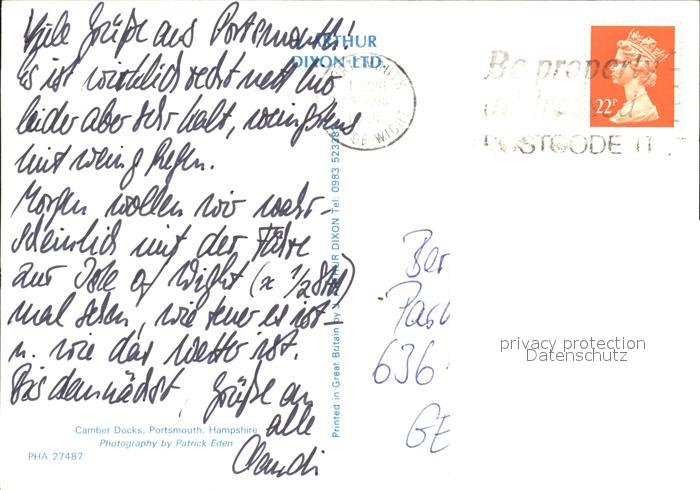 Viele Grüße aus Portsmouth!
Es ist wirklich recht nett hier
leider aber sehr kalt, wenigstens
mit wenig Regen.
Morgen wollen wir wahr-
scheinlich mit der Fähre
zur Isle of Wight (x 1/2 Std)
mal sehen, wie teuer es ist
u. wie das Wetter ist.
Bis demnächst, Grüße an
alle
Claudi
Camber Docks, Portsmouth, Hampshire
Photography by Patrick Eden
PHA 27487
ARTHUR
DIXON LTD.
Printed in Great Britain by J. ARTHUR DIXON Tel: 0983 523381
OF WIGHT
Be properly
addressed
POSTCODE IT
22P
Ber
636
GE
privacy protection
Datenschutz